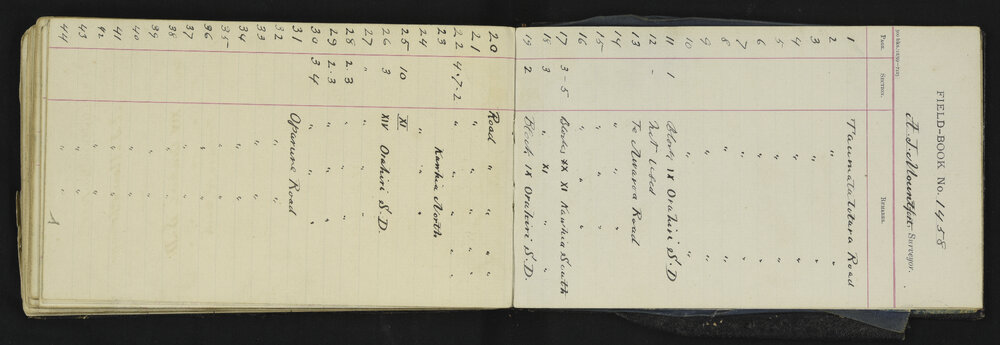 FIELD-BOOK No. 1458
A. J. Mountfort, Surveyor.
PAGE. SECTION. REMARKS.
1 Taumatatotara Road
2 " "
3 " "
4 " "
5 " "
6 " "
7 " "
8 " "
9 " "
10 " "
11 1 Block IX Orahiri S.D
12 " Not Used
13 To Awaroa Road
14 " " "
15 " " "
16 " " "
17 3-5 Blocks XX XI Kawhia South
18 3 " XI "
19 2 Block IX Orahiri S.D.
20 Road " "
21 " " "
22 4.7.2 " " " "
23 Kawhia North
24 " "
25 10 XI
26 3 XIV Orahiri S.D.
27 " " " "
28 2.3 " " "
29 2.3 " " "
30 3 4 " " "
31 Oparure Road
32 " "
33 " "
34 " "
35 " "
36 " "
37 " "
38
39
40
41
42
43
44